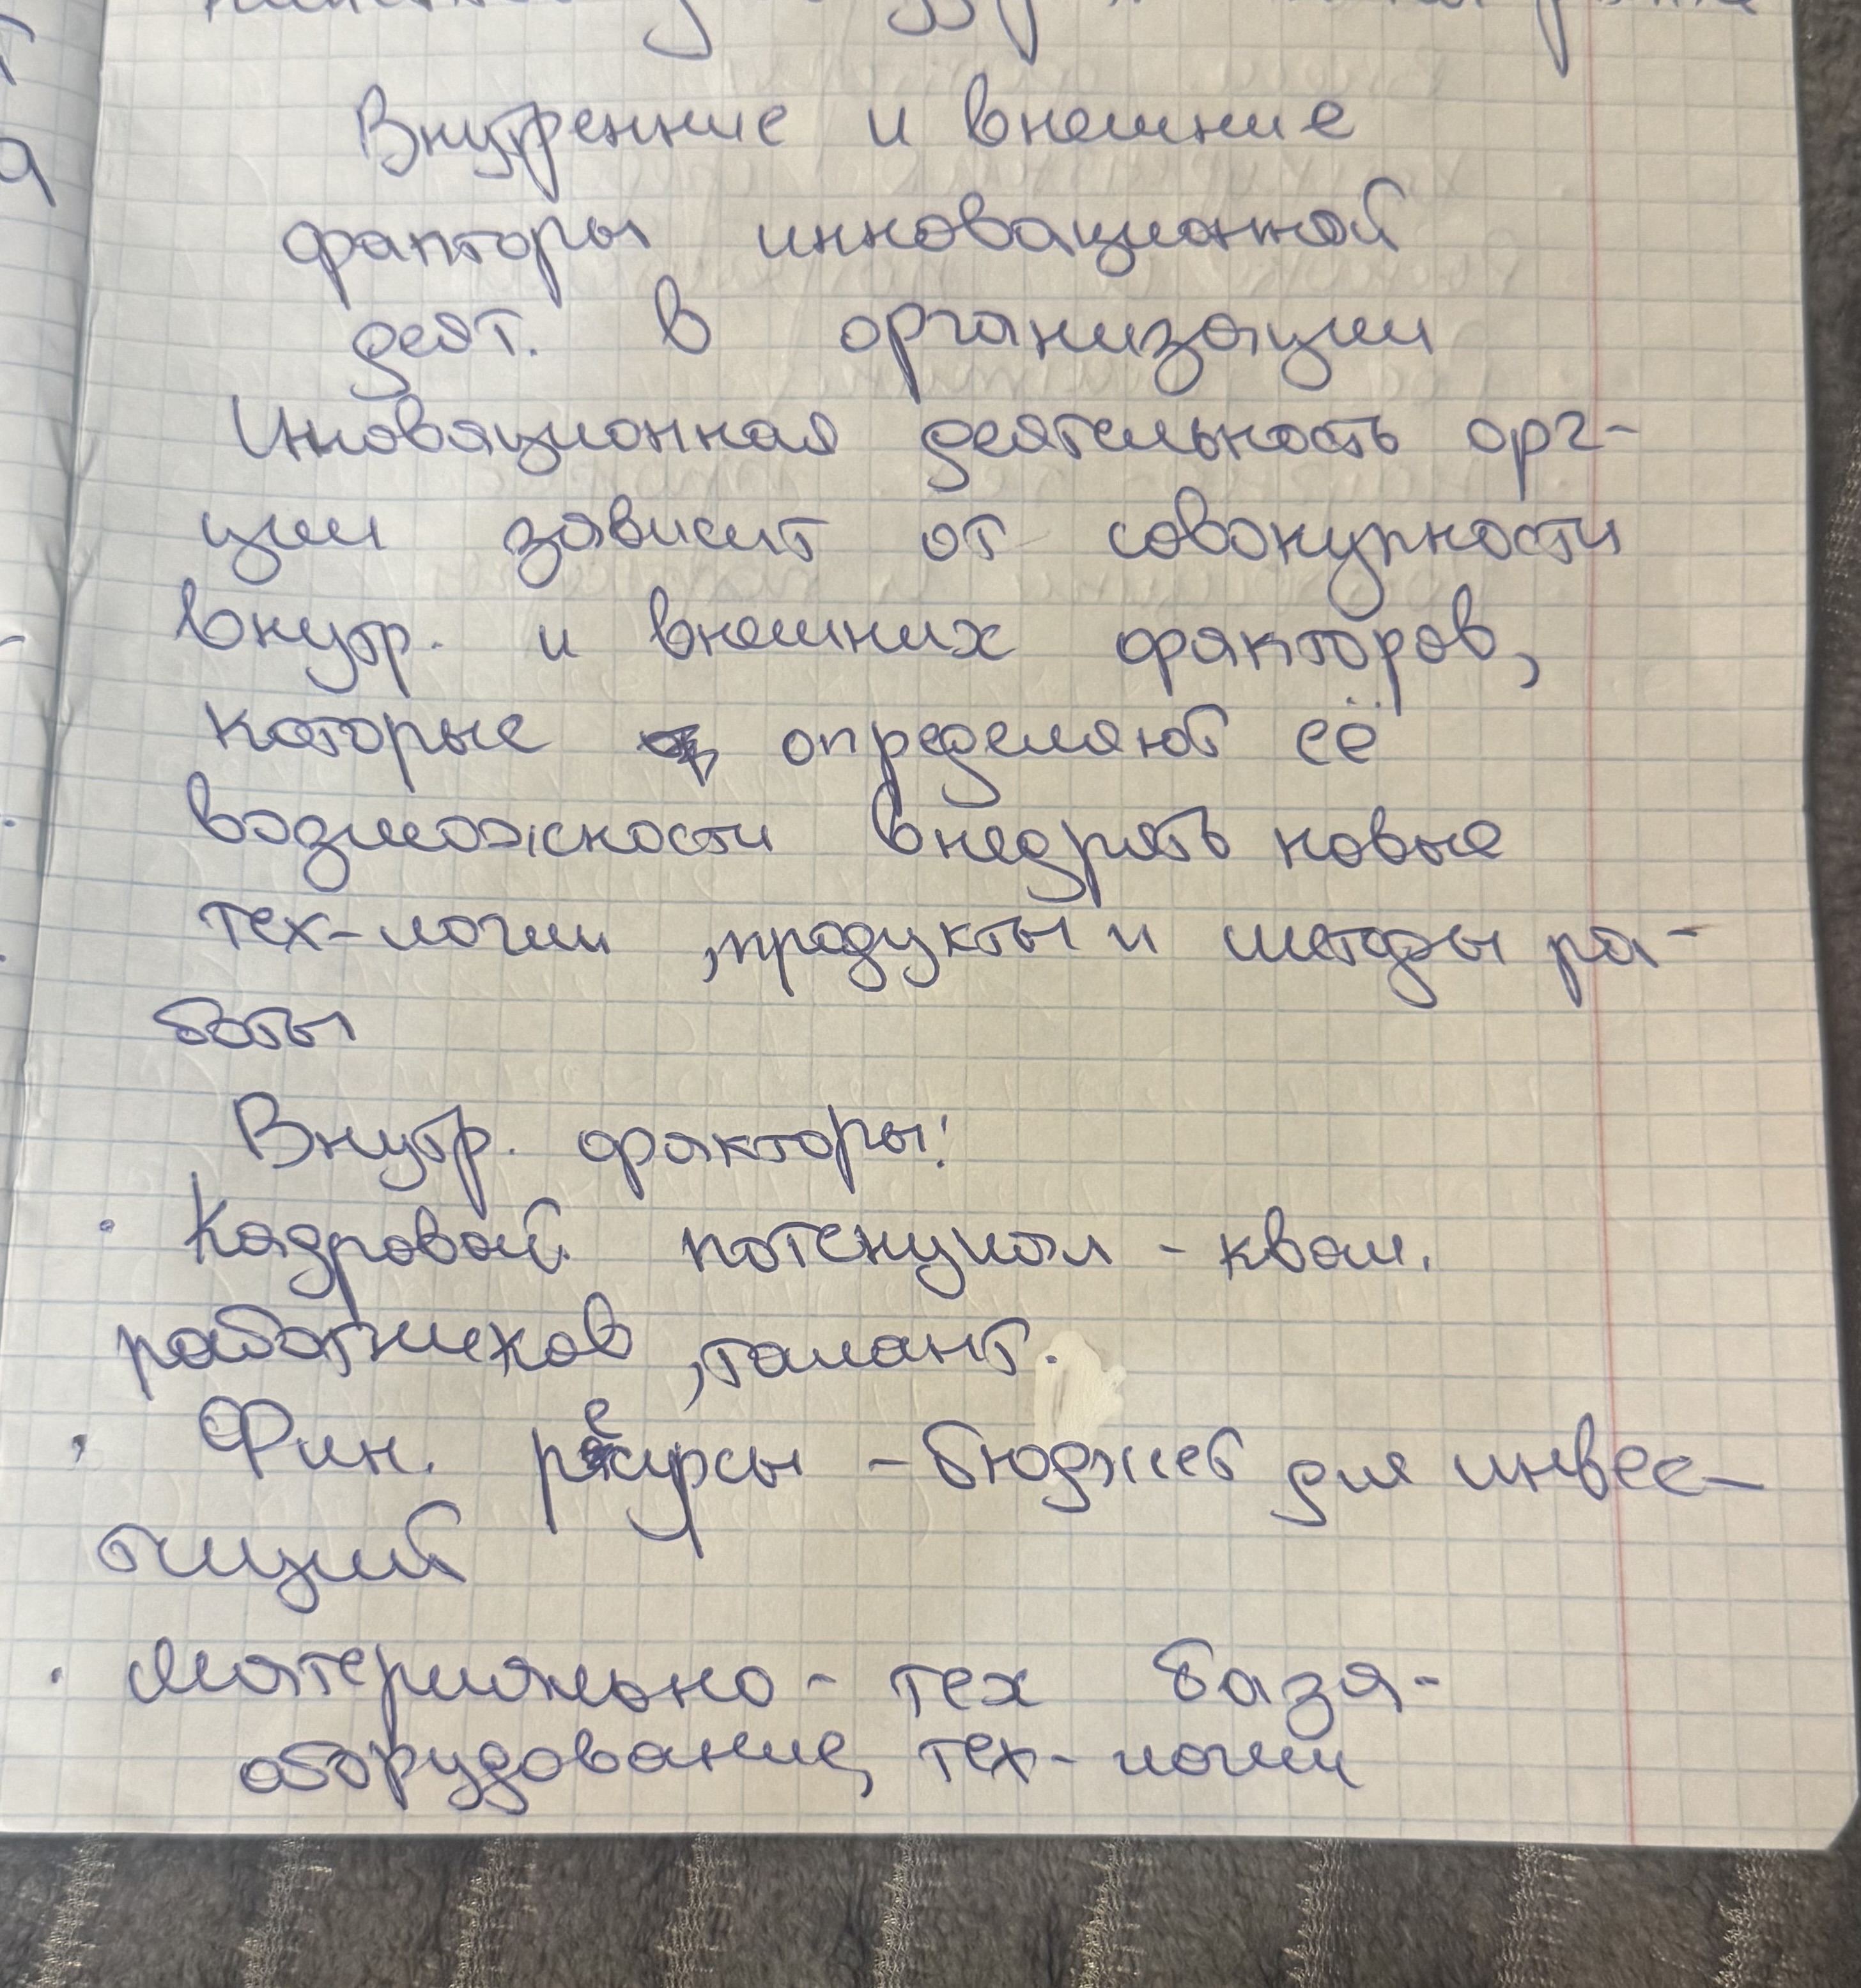 Внутренние и внешние
факторы инновационной
деят. в организации
Инновационная деятельность орг-
ции зависит от совокупности
внутр. и внешних факторов,
которые определяют её
возможности внедрять новые
тех-логии, продукты и методы ра-
боты
Внутр. факторы:
· Кадровой потенциал - квал.
работников, талант.
· Фин. ресурсы - бюджет для инвес-
тиций
· Материально - тех база -
оборудование, тех-логии